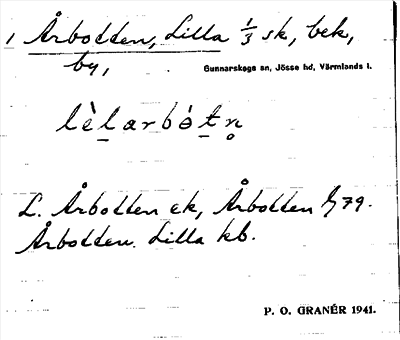 1 Årbotten, Lilla 1/3 sk, bek,
by,
Gunnarskogs sn, Jösse hd, Värmlands l.
lèlarbòtn̥
L. Årbotten ek, Årbotten 79.
Årbotten Lilla kb.
P. O. GRANÉR 1941.